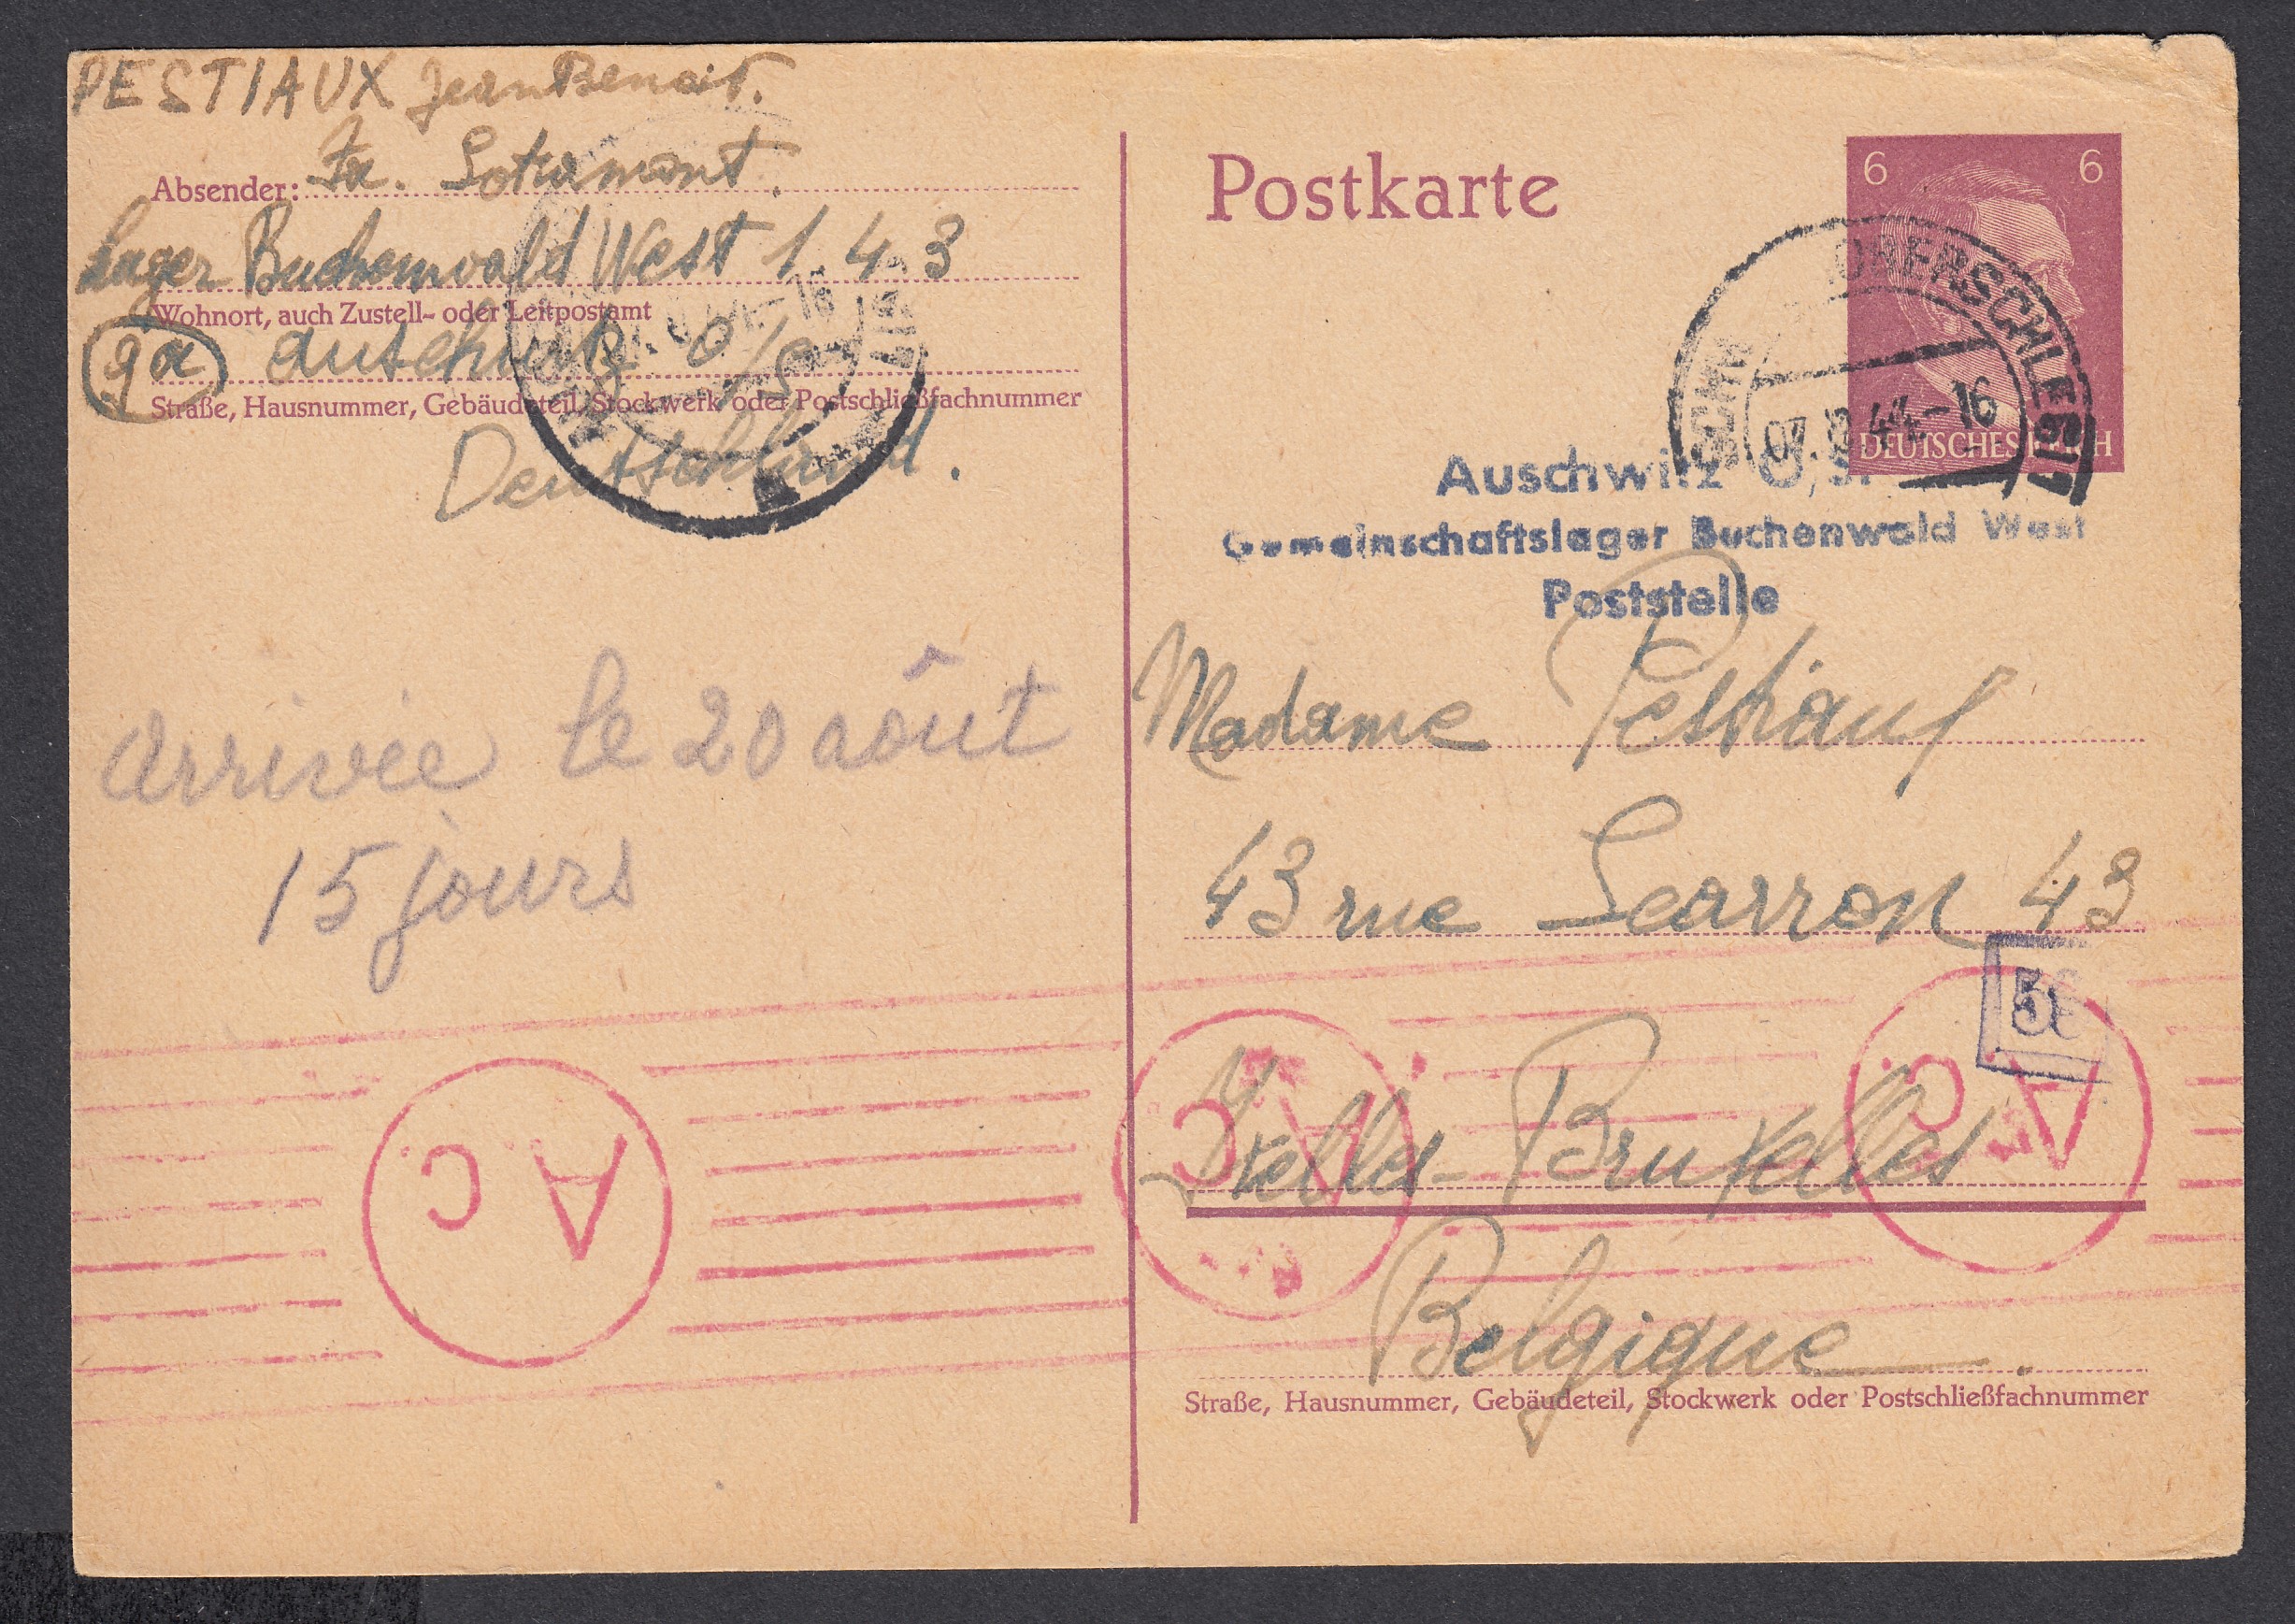 PESTIAUX Jean Benoit.
Absender: Fa. Sotramont.
Lager Buchenwald West 1. 4 3
Wohnort, auch Zustell- oder Leitpostamt
9a O/S
Straße, Hausnummer, Gebäudeteil, Stockwerk oder Postschließfachnummer
Deutschland.
arrivée le 20 août
15 jours
Postkarte
6 6
DEUTSCHES REICH
OBERSCHLES
44-16
Auschwitz O/S.
Gemeinschaftslager Buchenwald West
Poststelle
Madame Pestiaux
43 rue Scarron 43
Ixelles-Bruxelles
Belgique.
Straße, Hausnummer, Gebäudeteil, Stockwerk oder Postschließfachnummer
A C.
A C
A C.